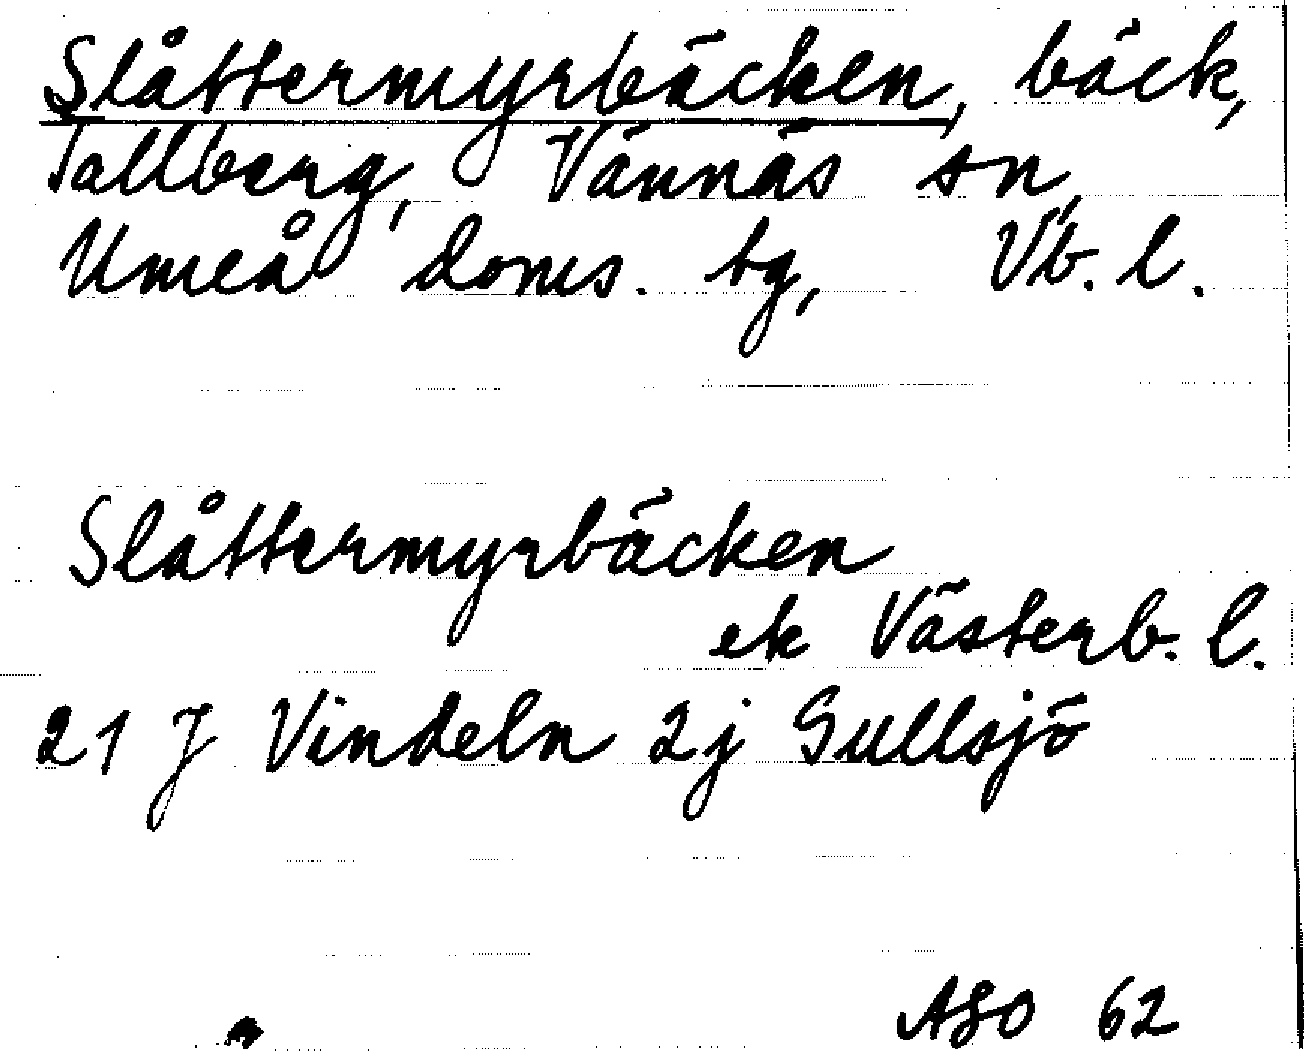 Slåttermyrbäcken, bäck,
Tallberg, Vännäs sn,
Umeå doms. tg, Vb. l.
Slåttermyrbäcken
ek Västerb. l.
21 J Vindeln 2j Gullsjö
ASO 62